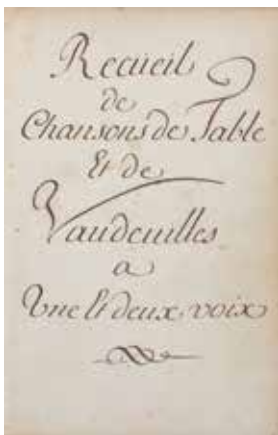 Recueil
de
Chansons de Table
Et de
Vaudeuilles
a
Une et deux voix